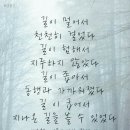 길이 멀어서
천천히 걸었다
길이 험해서
지루하지 않았다
길이 좁아서
동행과 가까워졌다
길이 굽어서
지나온 길을 볼 수 있었다